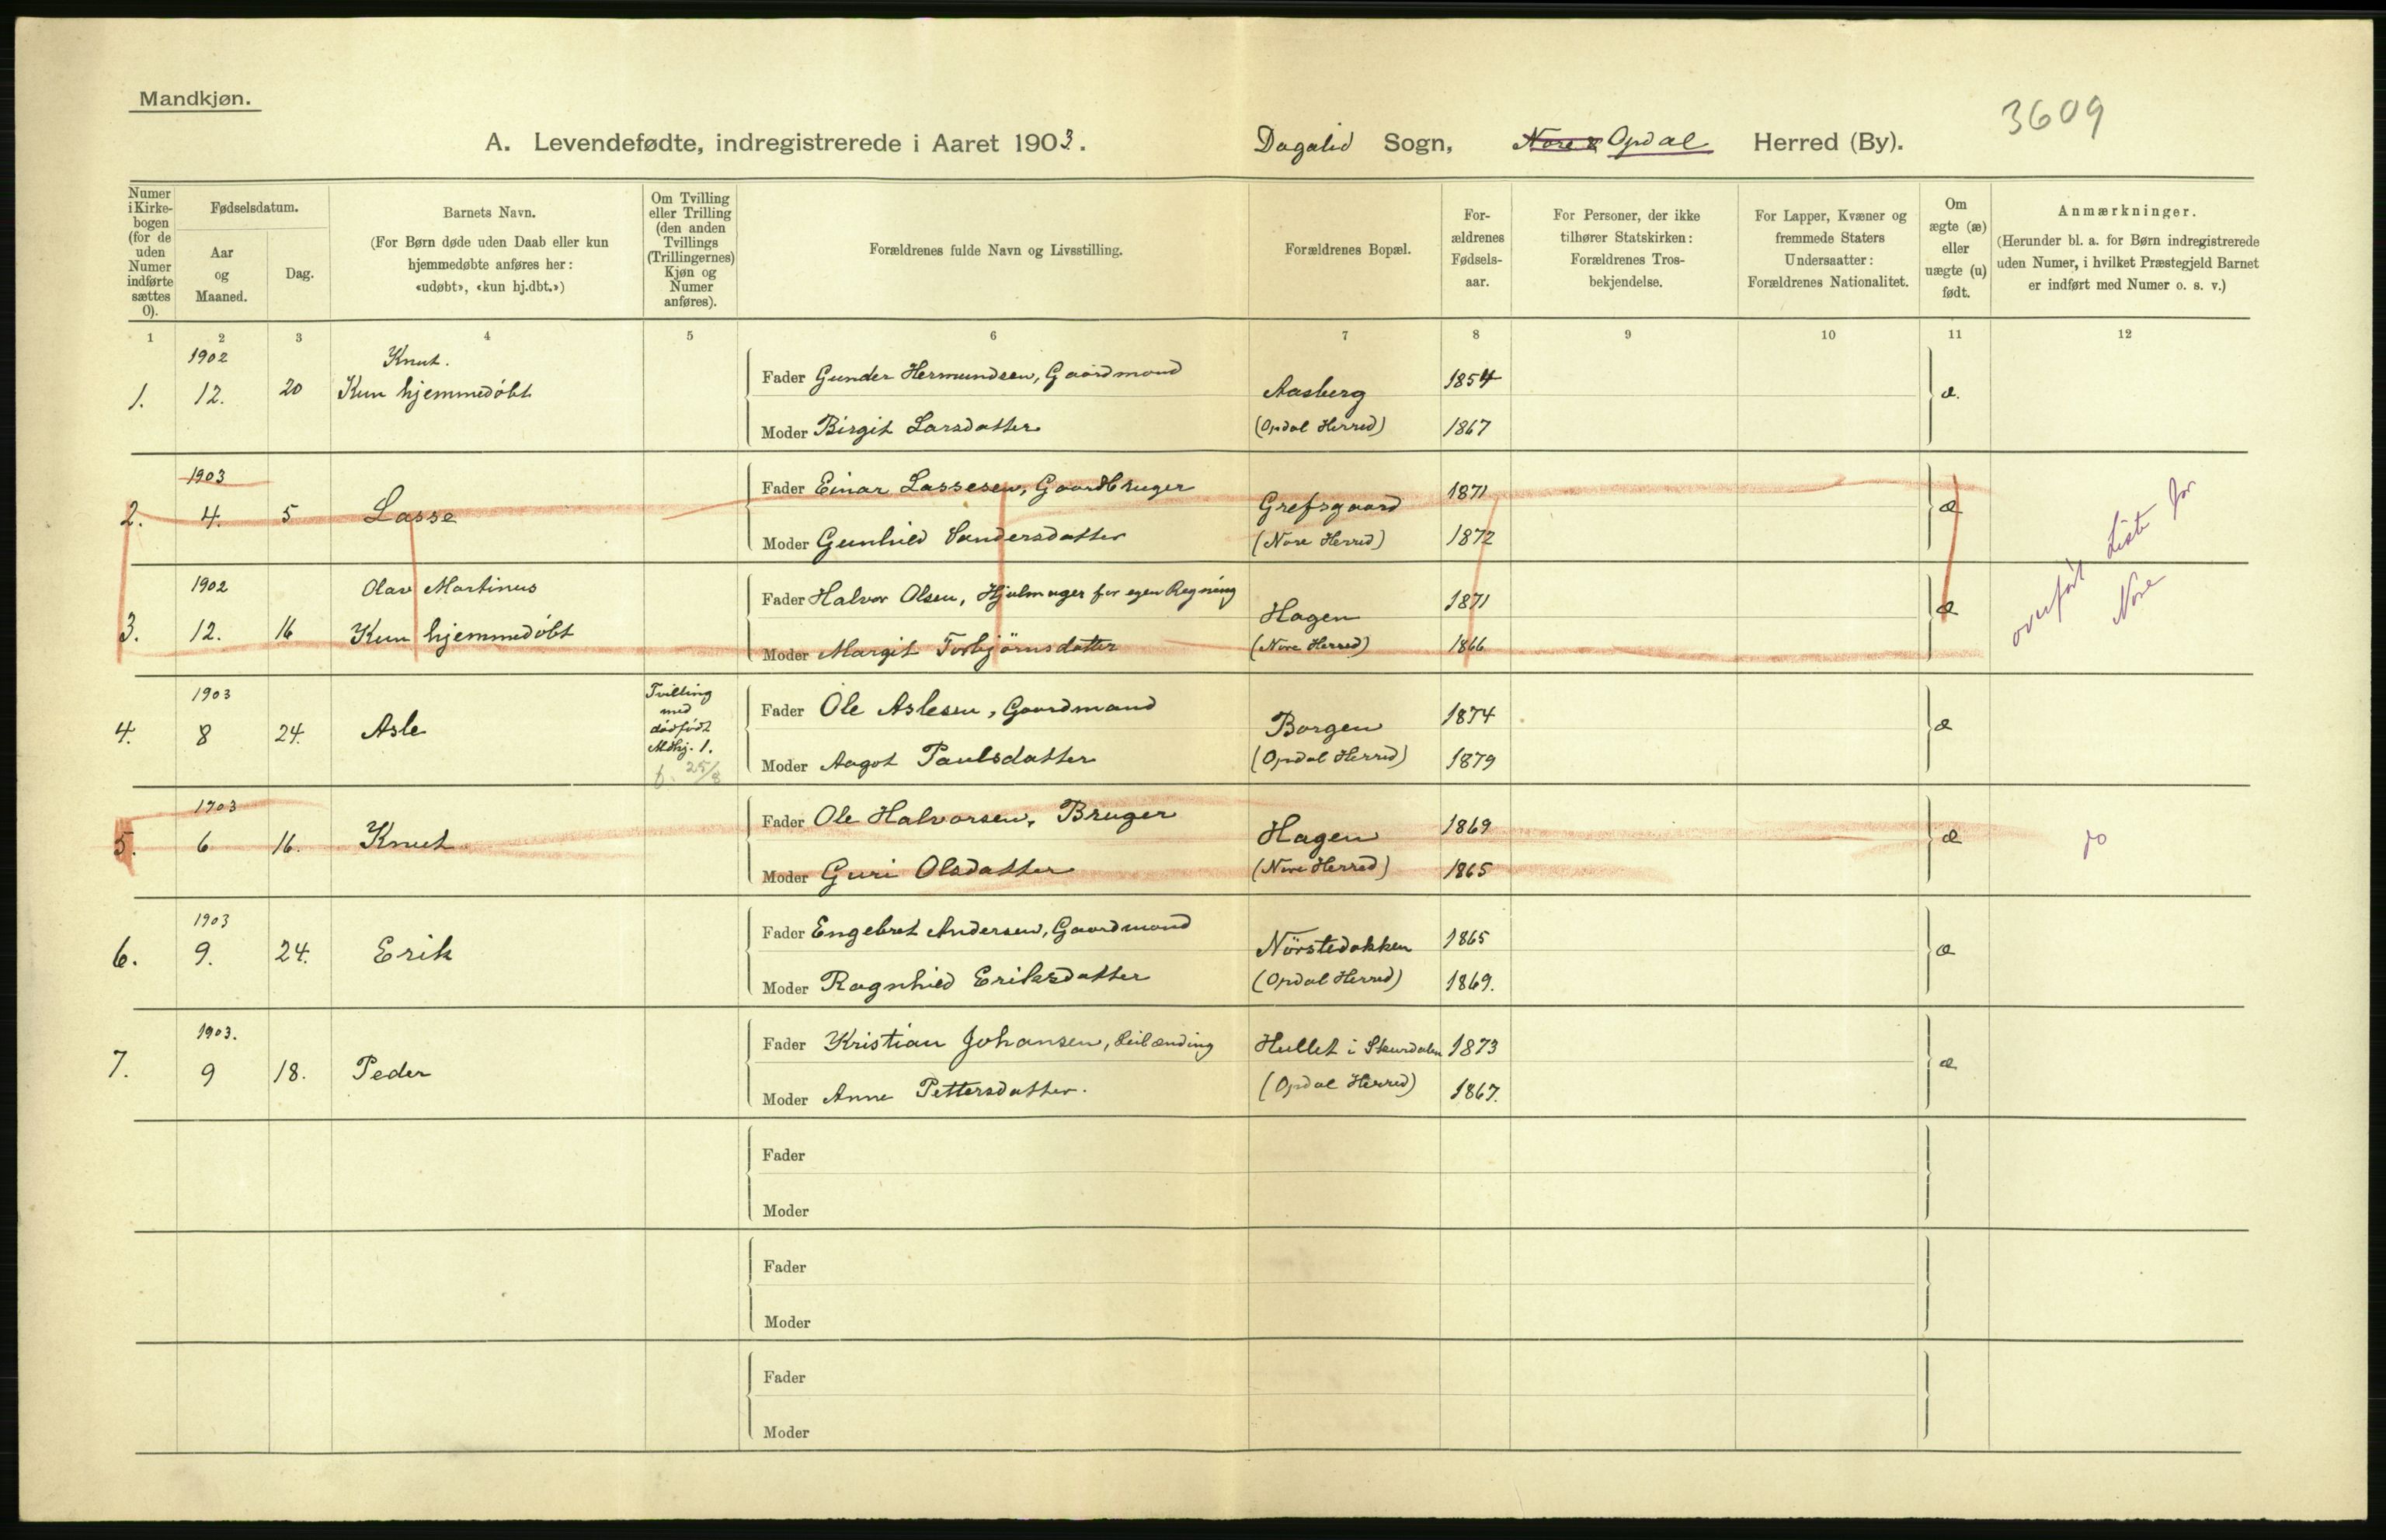 Mandkjøn.
3609
A. Levendefødte, indregistrerede i Aaret 1903. Dagalid Sogn, Nore & Opdal Herred (By).
Numer i Kirkebogen (for de uden Numer indførte sættes 0).
Fødselsdatum.
Aar og Maaned.
Dag.
Barnets Navn.
(For Børn døde uden Daab eller kun hjemmedøbte anføres her: «udøbt», «kun hj.dbt.»)
Om Tvilling eller Trilling (den anden Tvillings (Trillingernes) Kjøn og Numer anføres).
Forældrenes fulde Navn og Livsstilling.
Forældrenes Bopæl.
Forældrenes Fødselsaar.
For Personer, der ikke tilhører Statskirken: Forældrenes Trosbekjendelse.
For Lapper, Kvæner og fremmede Staters Undersaatter: Forældrenes Nationalitet.
Om ægte (æ) eller uægte (u) født.
Anmærkninger.
(Herunder bl. a. for Børn indregistrerede uden Numer, i hvilket Præstegjeld Barnet er indført med Numer o. s. v.)
1 2 3 4 5 6 7 8 9 10 11 12
1902 Knut.
1. 12. 20 Kun hjemmedøbt
Fader Gunder Hermundsen, Gaardmand Aasberg 1854 æ.
Moder Birgit Larsdatter (Opdal Herred) 1867
1903
2. 4. 5 Lasse
Fader Einar Lassesen, Gaardbruger Grefsgaard 1871 æ
Moder Gunhild Sandersdatter (Nore Herred) 1872
overført Liste for Nore
1902 Olav Martinus
3. 12. 16 Kun hjemmedøbt
Fader Halvor Olsen, Hjulmager for egen Regning Hagen 1871 æ
Moder Margit Torbjörnsdatter (Nore Herred) 1866
1903
4. 8 24. Asle
Tvilling
med
dødfødt
Mdkj. 1.
f. 25/8
Fader Ole Aslesen, Gaardmand Borgen 1874 æ
Moder Aagot Paulsdatter (Opdal Herred) 1879
1903
5. 6 16. Knut
Fader Ole Halvorsen, Bruger Hagen 1869 æ do
Moder Guri Olsdatter (Nore Herred) 1865
1903
6. 9. 24. Erik
Fader Engebret Andersen, Gaardmand Nörstedokken 1865 æ
Moder Ragnhild Eriksdatter (Opdal Herred) 1869.
1903.
7. 9 18. Peder
Fader Kristian Johansen, Leilænding Hullet i Skurdalen 1873 æ
Moder Anne Pettersdatter. (Opdal Herred) 1867.
Fader
Moder
Fader
Moder
Fader
Moder